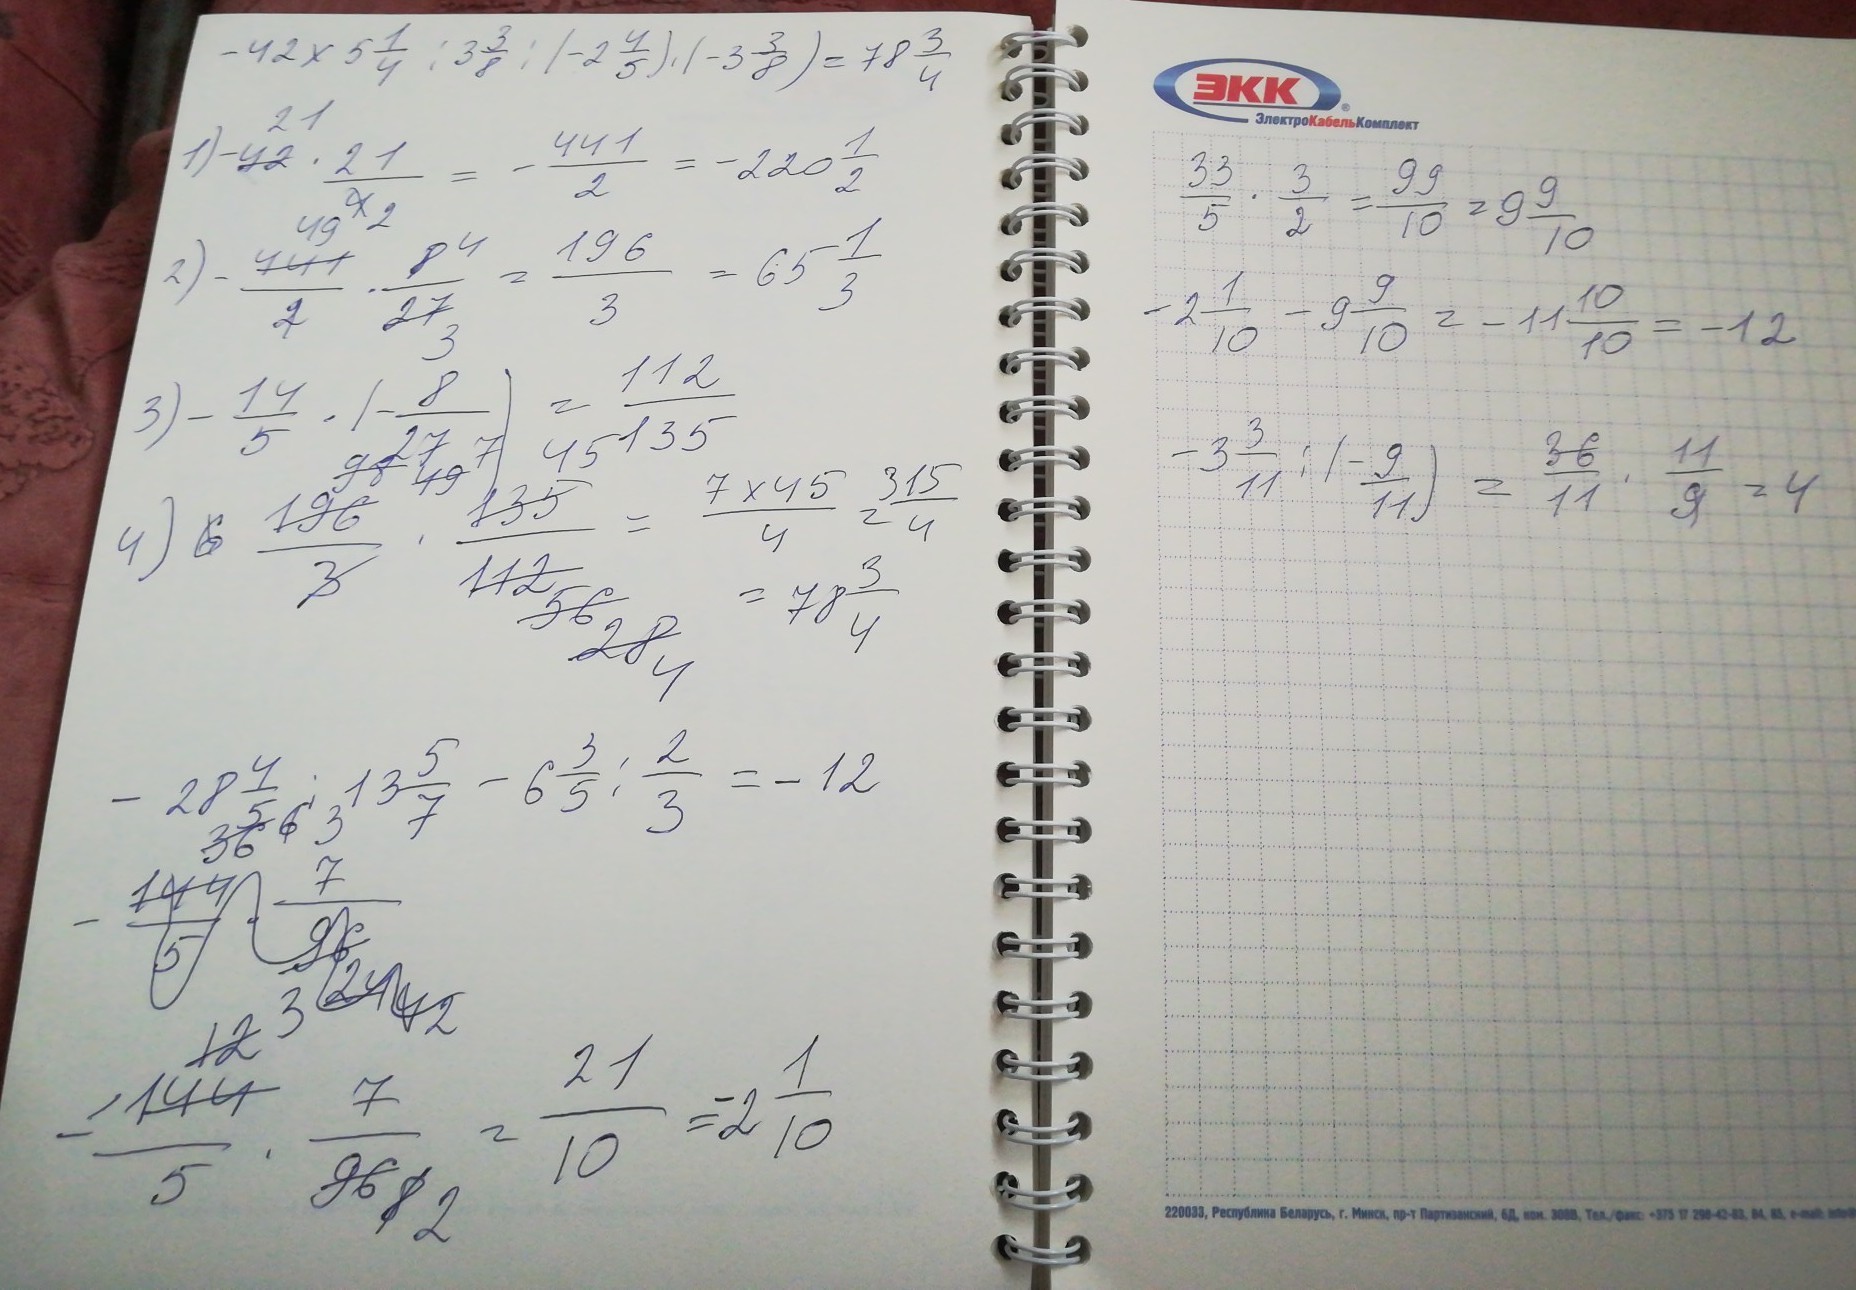 -42 × 5 1/4 : 3 3/8 : (-2 4/5) : (-3 3/8) = 78 3/4
21
1) -42 · 21/4 2 = - 441/2 = -220 1/2
49
2) - 441/2 · 8 4/27 3 = 196/3 = 65 1/3
3) - 14/5 · (- 8/27) = 112/135
98 49 7 45
4) 196/3 · 135/112 56 28 4 = 7×45/4 = 315/4
= 78 3/4
- 28 4/5 : 13 5/7 - 6 3/5 : 2/3 = -12
36 6 3
- 144/5 · 7/96 24 12
12 3
- 144/5 · 7/96 8 2 = 21/10 = -2 1/10
ЭКК
®
ЭлектроКабельКомплект
33/5 · 3/2 = 99/10 = 9 9/10
-2 1/10 - 9 9/10 = -11 10/10 = -12
-3 3/11 : (- 9/11) = 36/11 · 11/9 = 4
220033, Республика Беларусь, г. Минск, пр-т Партизанский, 6Д, ком. 308В, Тел./факс: +375 17 298-42-83, 84, 85, e-mail: